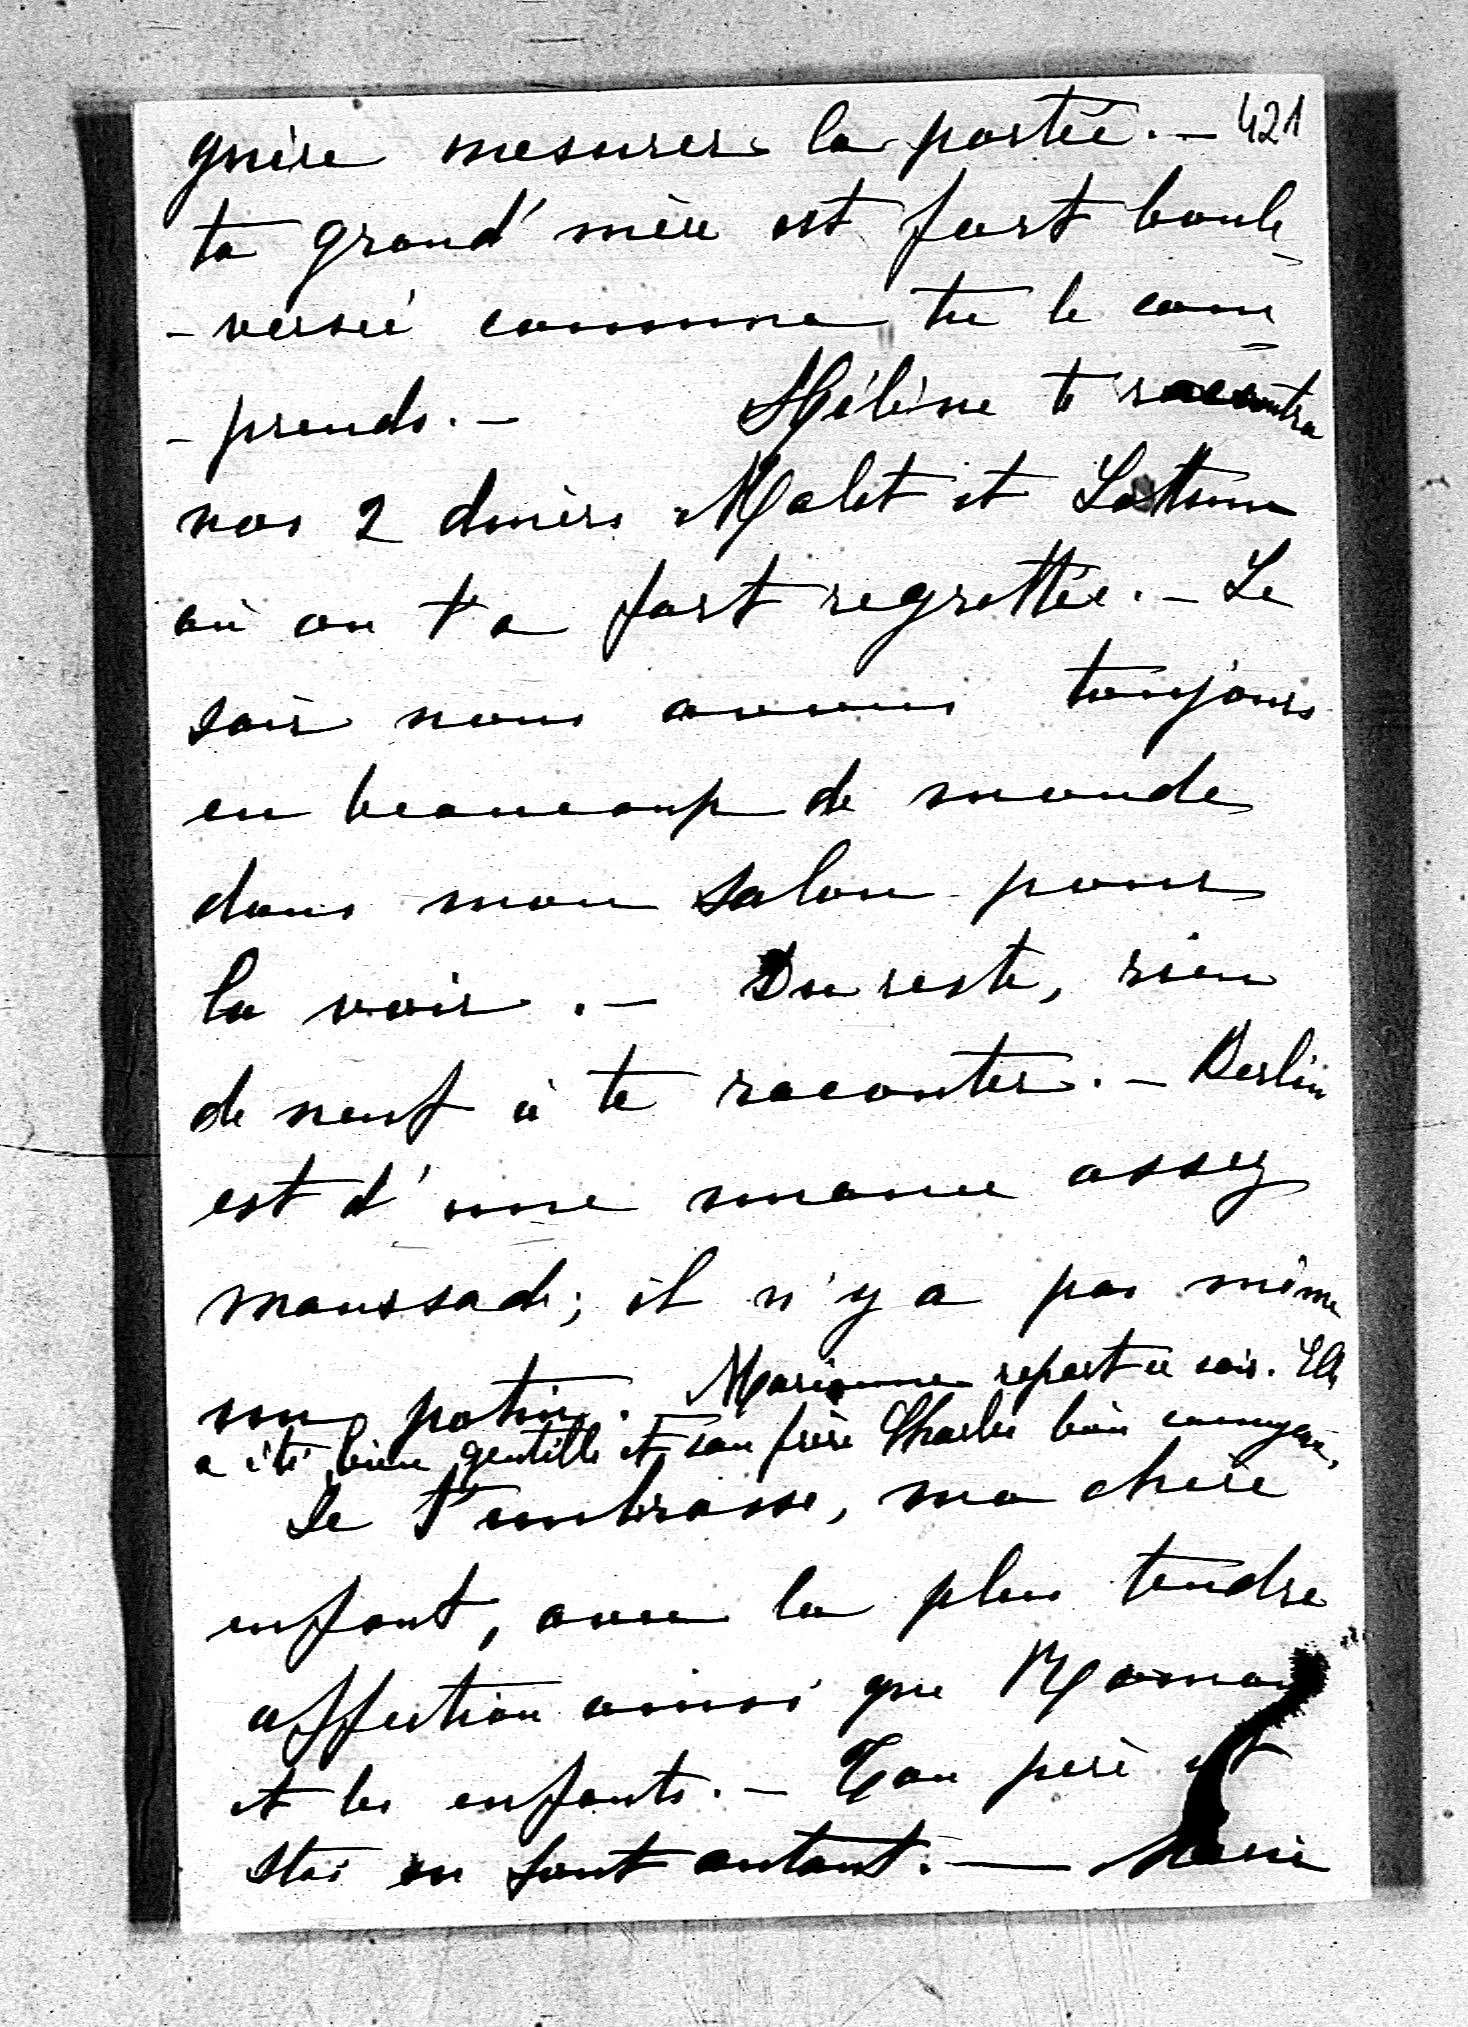 guère mesurer la portée. — 421
ta grand'mère est fort boule-
-versée comme tu le com=
-prends. — Hélène te racontra
nos 2 diners Malet et
où on t'a fort regrettée. — Le
soir nous avons toujours
eu beaucoup de monde
dans mon salon pour
la voir. — Du reste, rien
de neuf à te raconter. — Berlin
est d'une nuance assez
maussade; il n'y a pas même
un potin. Marianne repart ce soir. Elle
a été bien gentille et son frère Charles bien ennuyeux.
Je t'embrasse, ma chère
enfant, avec la plus tendre
affection ainsi que
et les enfants. — Ton père et
en font autant. — Marie